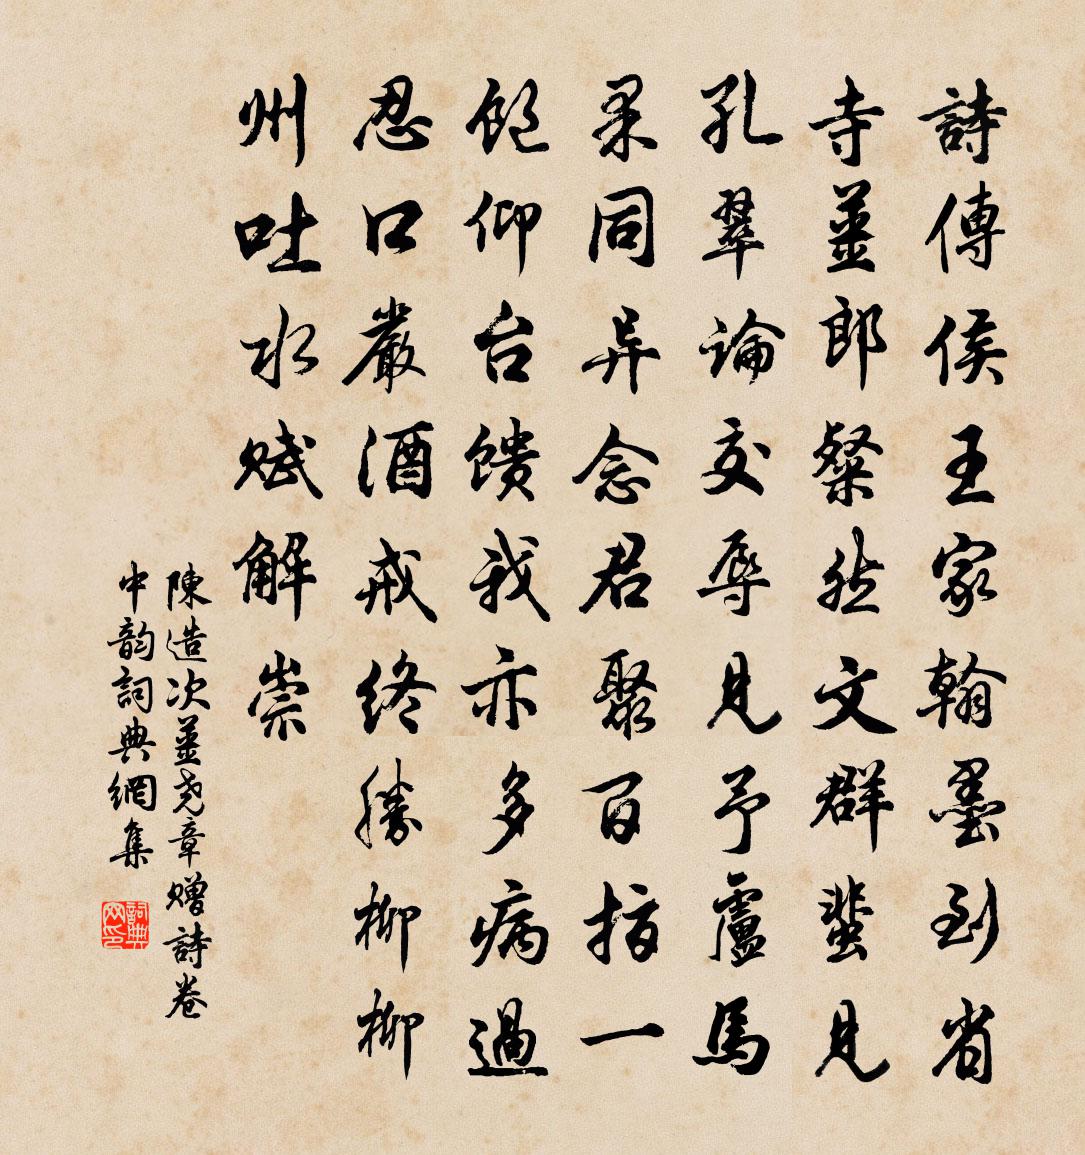 詩傳侯王家翰墨到省
寺薑郎粲然文群蜚見
孔翠論交辱見予盧馬
果同异念君聚百指一
飽仰台馈我亦多病過
忍口嚴酒戒終勝柳柳
州吐水赋解祟
陳造次薑堯章赠詩卷
中韵詞典網集
詞典网印